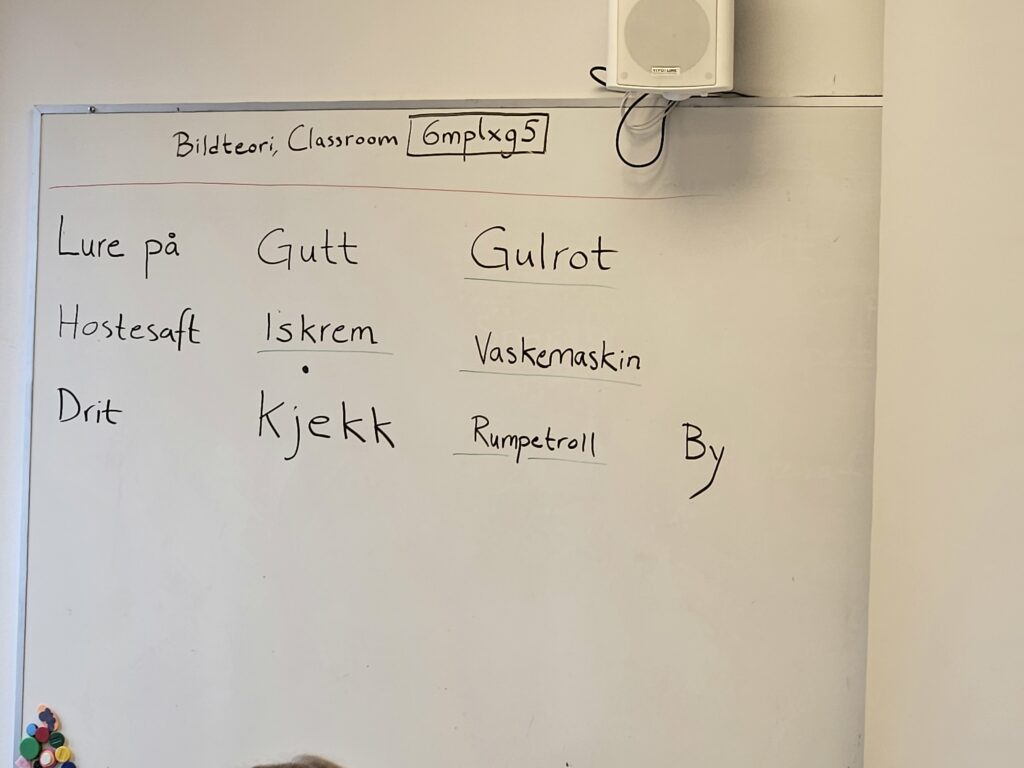 Bildteori, Classroom 6mplxg5
Lure på Gutt Gulrot
Hostesaft Iskrem Vaskemaskin
Drit Kjekk Rumpetroll By